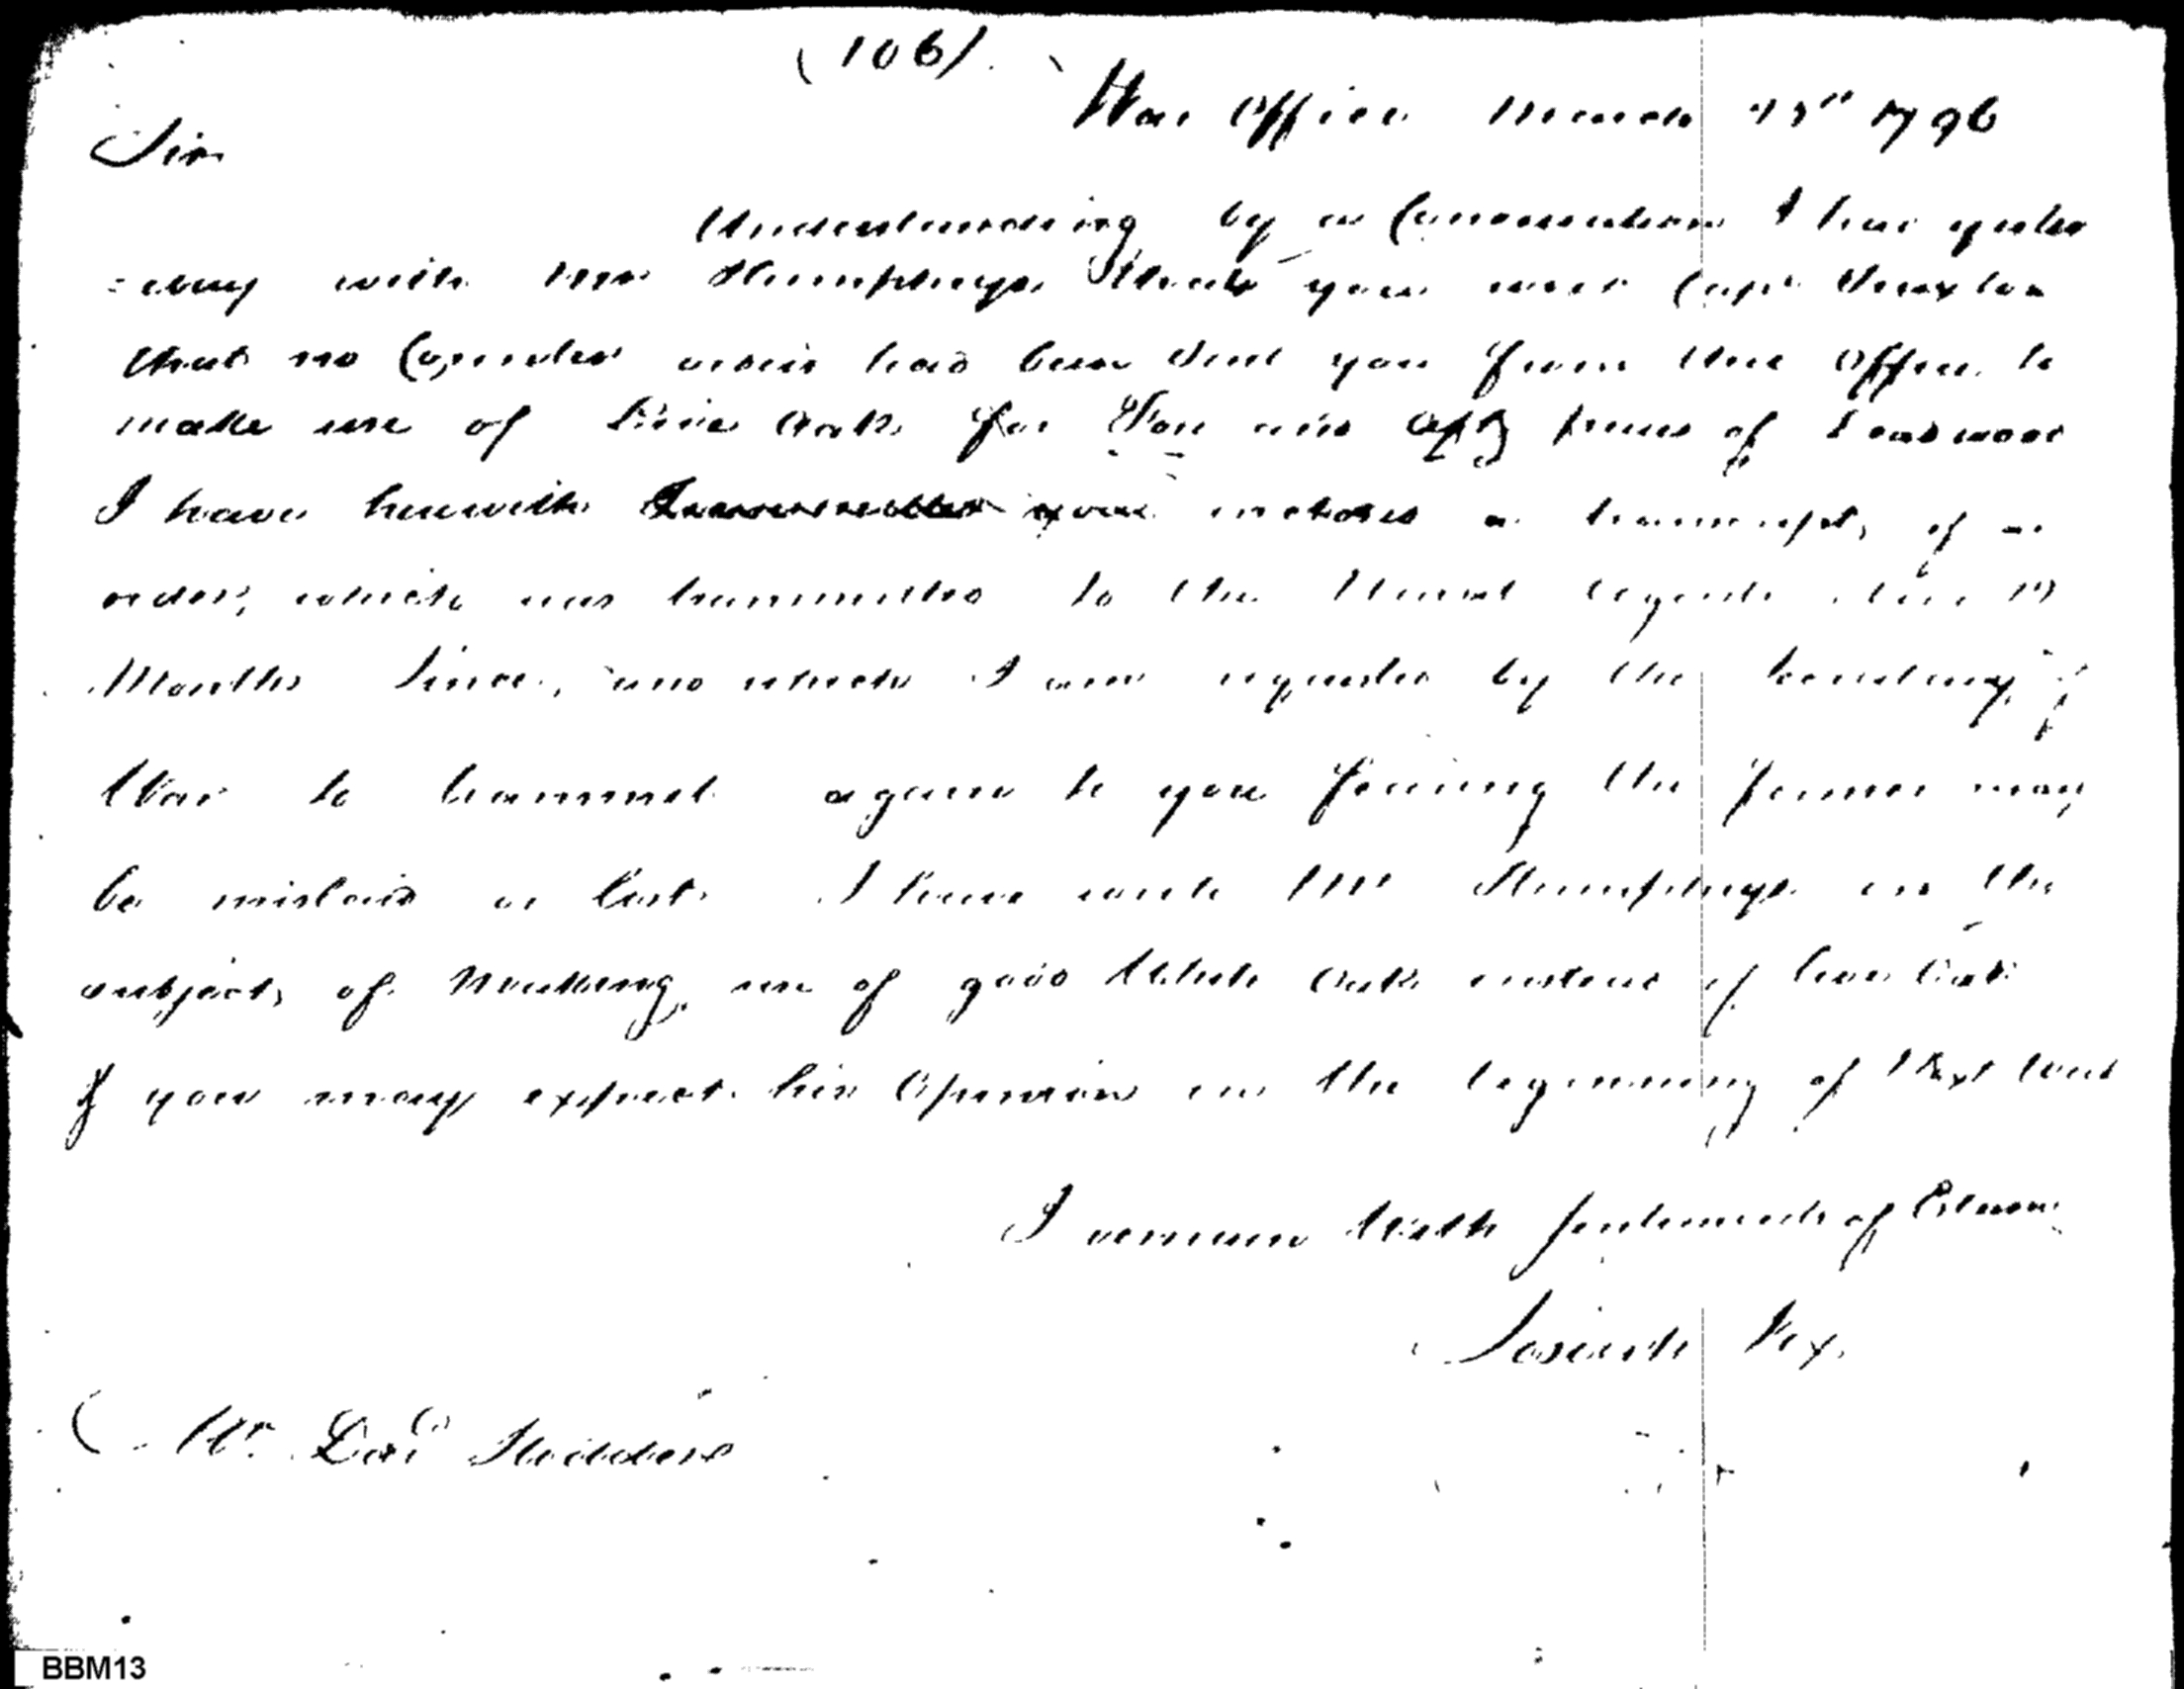 (106)
War Office March 1796
Sir
Understanding by a Conversation I had yester
=day with Mr Humphreys that you and Capt Truxton
that no Counter order had been sent you from this Office to
make use of Live Oak for Fore and Aft pieces of
I have herewith inclosed a transcript, of an
order, which was transmitted to the Naval Agents
Months since, and which I am requested by the Secretary of
War to transmit again to you fearing the former may
be mislaid or lost. I have wrote Mr Humphreys on the
subject, of Making use of good White Oak instead of Live Oak
& you may expect his Opinion in the beginning of Next Week
I remain With Sentiments of Esteem
Josiah Fox
Mr. David Stodder
BBM13